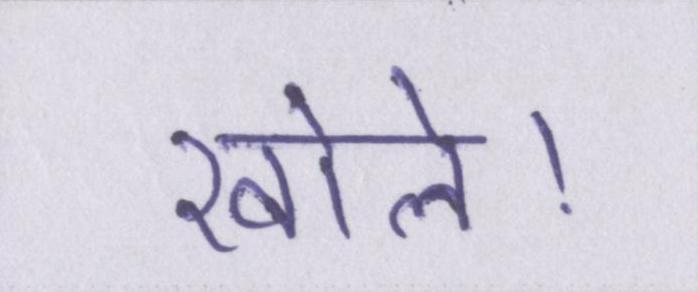 खोले!